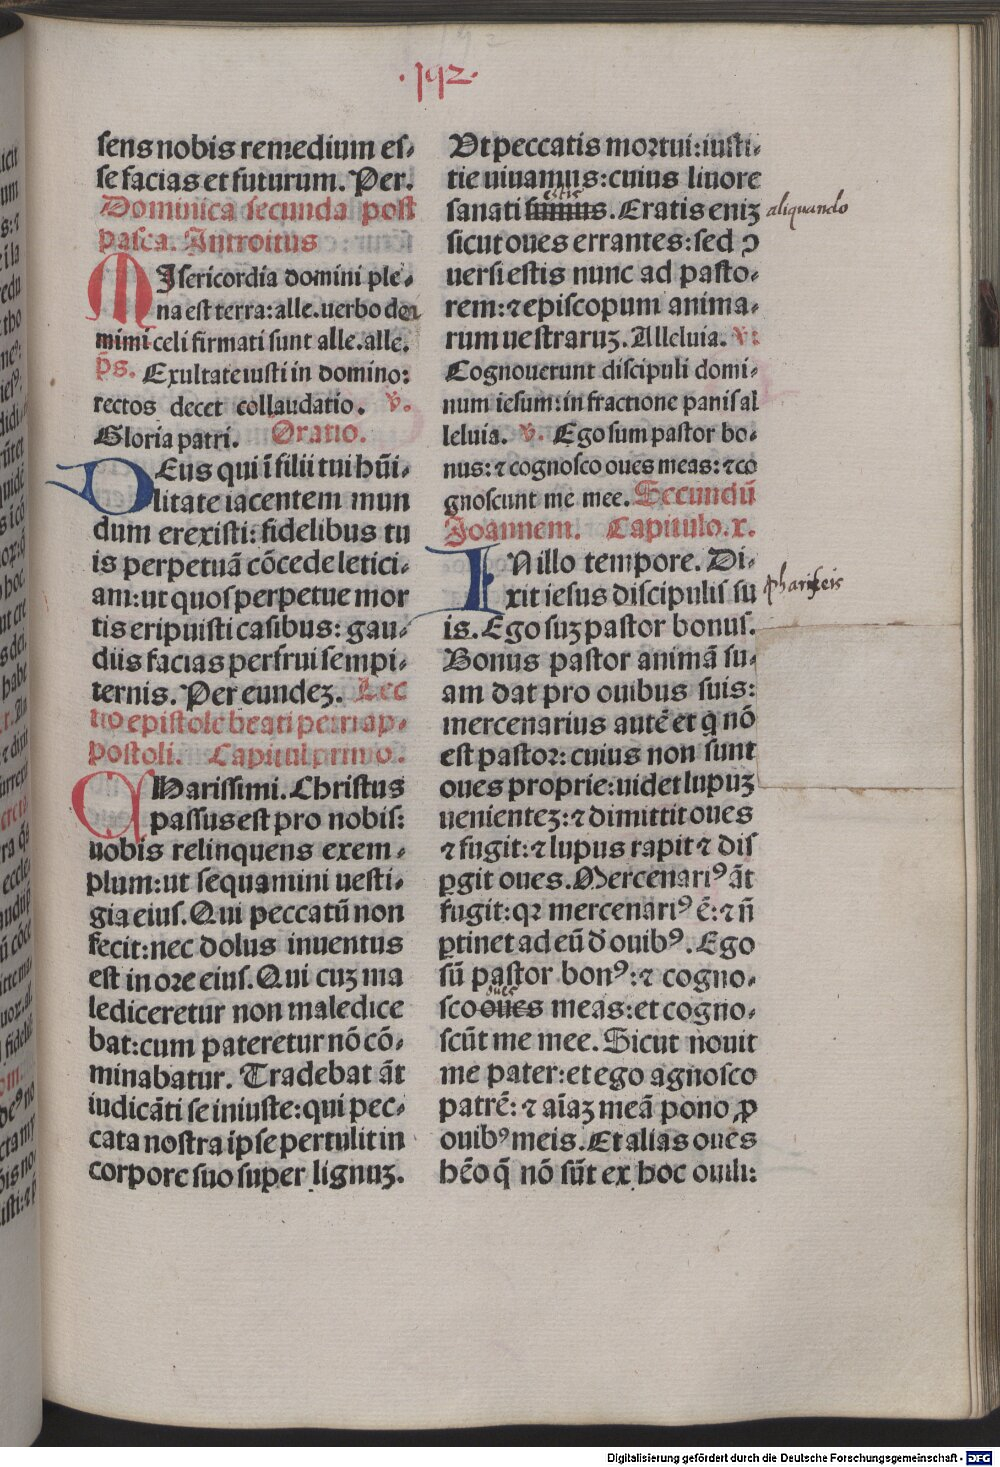 192
.192.
sens nobis remedium es⸗
se facias et futurum. Per.
Dominica secunda post
pasca. Introitus
MIsericordia domini ple⸗
na est terra: alle. uerbo do
mimi celi firmati sunt alle. alle.
p̄s. Exultate iusti in domino:
rectos decet collaudatio. v̄.
Gloria patri. Oratio.
DEus qui ī filii tui hūi⸗
litate iacentem mun
dum erexisti: fidelibus tu
is perpetuā cōcede letici⸗
am: ut quos perpetue mor
tis eripuisti casibus: gau⸗
diis facias perfrui sempi⸗
ternis. Per eundeꝫ. Lec
tio epistole beati petri ap⸗
postoli. Capitul. primo.
CHarissimi. Christus
passus est pro nobis:
uobis relinquens exem⸗
plum: ut sequamini uesti⸗
gia eius. Qui peccatū non
fecit: nec dolus inuentus
est in ore eius. Qui cuꝫ ma
lediceretur non maledice
bat: cum pateretur nō cō⸗
minabatur. Tradebat āt
iudicāti se iniuste: qui pec⸗
cata nostra ipse pertulit in
corpore suo super lignuꝫ.
Vt peccatis mortui: iusti⸗
tie uiuamus: cuius liuore
estis
sanati sumus. Eratis eniꝫ aliquando
sicut oues errantes: sed ↄ
uersi estis nunc ad pasto⸗
rem: ⁊ episcopum anima⸗
rum uestraruꝫ. Alleluia. v̄:
Cognouerunt discipuli domi⸗
num iesum: in fractione panis al
leluia. v̄. Ego sum pastor bo⸗
nus: ⁊ cognosco oues meas: ⁊ co
gnoscunt me mee. Secundū
Joannem. Capitulo. x.
IN illo tempore. Di⸗
xit iesus discipulis su phariseis
is. Ego suꝫ pastor bonus.
Bonus pastor animā su⸗
am dat pro ouibus suis:
mercenarius autē et q nō
est pastor: cuius non sunt
oues proprie: uidet lupuꝫ
uenienteꝫ: ⁊ dimittit oues
⁊ fugit: ⁊ lupus rapit ⁊ dis
ꝑgit oues. Mercenariꝰ āt
fugit: qꝛ mercenariꝰ ē: ⁊ n̄
ꝑtinet ad eū d̄ ouibꝰ. Ego
sū pastor bonꝰ: ⁊ cogno⸗
oues
sco oues meas: et cogno⸗
scūt me mee. Sicut nouit
me pater: et ego agnosco
patrē: ⁊ aīaꝫ meā pono ꝓ
ouibꝰ meis. Et alias oues
hēo q̄ nō sūt ex hoc ouili:
Digitalisierung gefördert durch die Deutsche Forschungsgemeinschaft - DFG